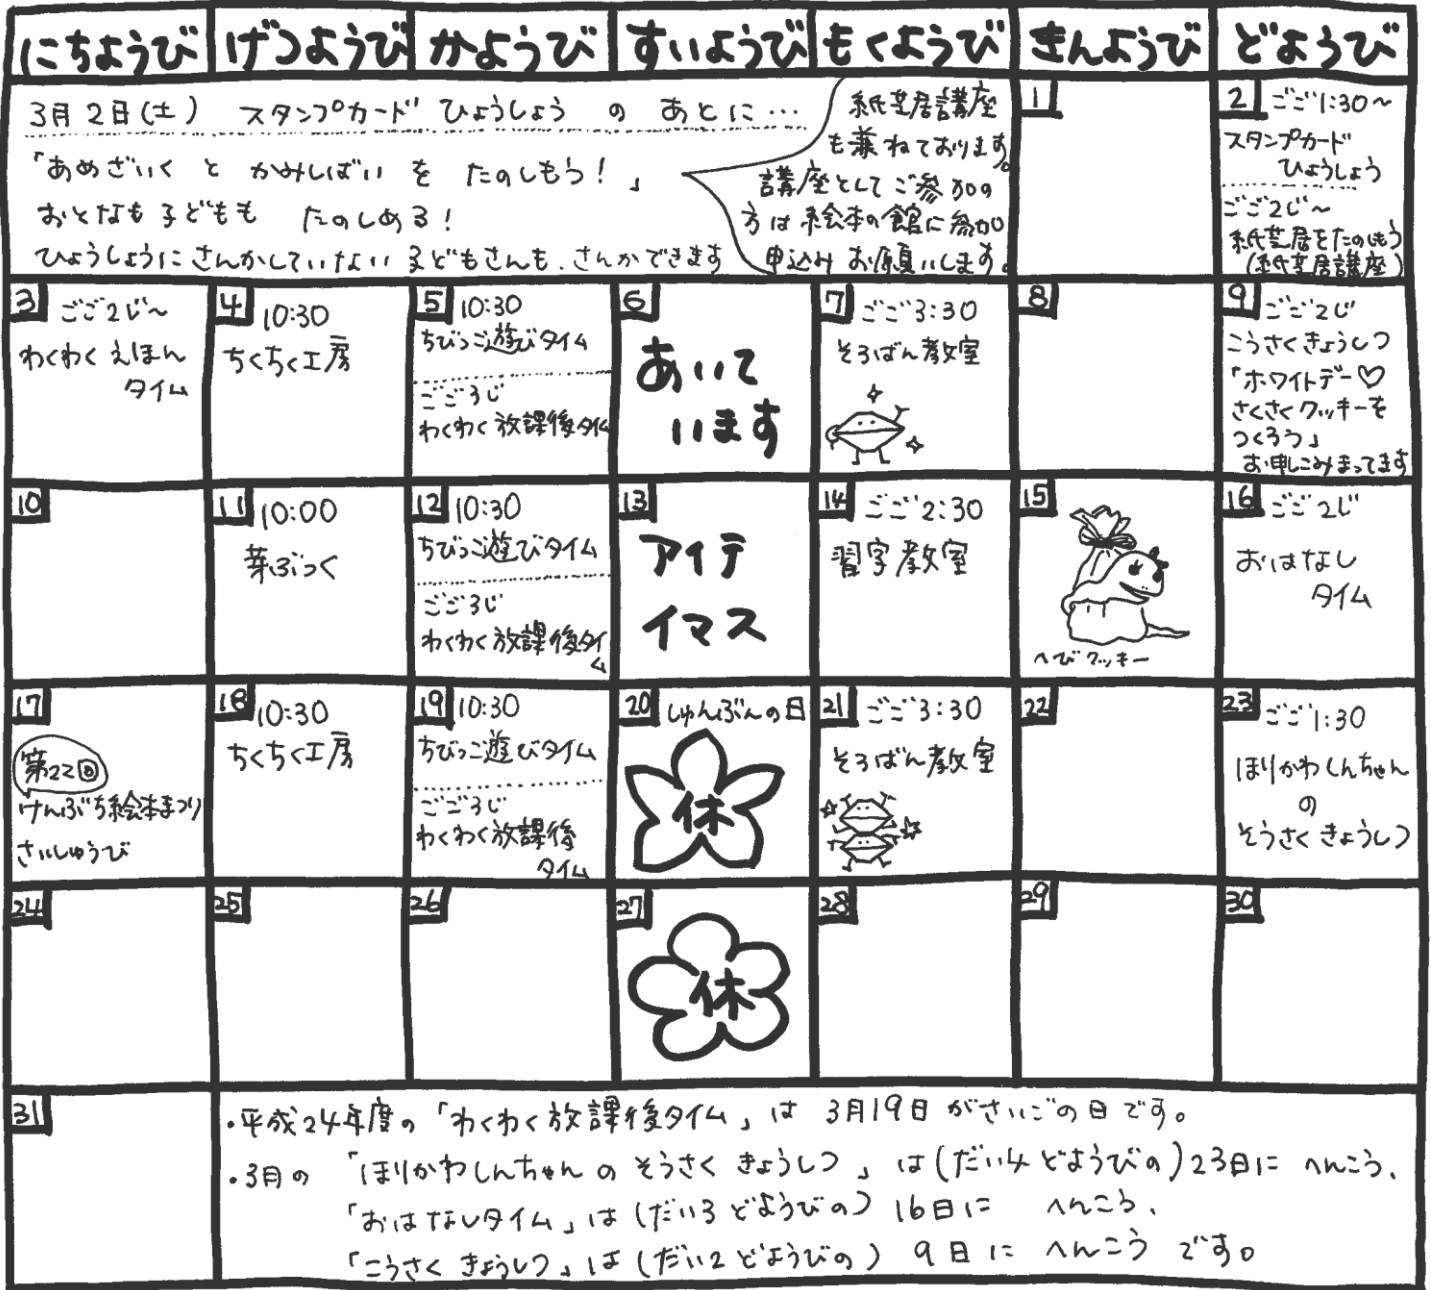 にちようび げつようび かようび すいようび もくようび きんようび どようび
3月2日(土) スタンプカード ひょうしょう の あとに…
「あめざいく と かみしばい を たのしもう!」
おとなも 子どもも たのしめる!
ひょうしょうに さんかしていない 子どもさんも、さんかできます
紙芝居講座
も兼ねております。
講座として ご参加の
方は 絵本の館に参加
申込み お願いします。
1
2 ごご1:30~
スタンプカード
ひょうしょう
ごご2じ~
紙芝居をたのしもう
(紙芝居講座)
3 ごご2じ~
わくわく えほん
タイム
4 10:30
ちくちく工房
5 10:30
ちびっこ遊びタイム
ごご3じ
わくわく放課後タイム
6
あいて
います
7 ごご3:30
そろばん教室
8
9 ごご2じ
こうさくきょうしつ
「ホワイトデー♡
さくさくクッキーを
つくろう」
お申しこみまってます
10
11 10:00
芽ぶっく
12 10:30
ちびっこ遊びタイム
ごご3じ
わくわく放課後タイ
ム
13
アイテ
イマス
14 ごご2:30
習字教室
15
へびクッキー
16 ごご2じ
おはなし
タイム
17
第22回
けんぶち絵本まつり
さいしゅうび
18 10:30
ちくちく工房
19 10:30
ちびっこ遊びタイム
ごご3じ
わくわく放課後
タイム
20 しゅんぶんの日
休
21 ごご3:30
そろばん教室
22
23 ごご1:30
ほりかわしんちゃん
の
そうさくきょうしつ
24
25
26
27
休
28
29
30
31
・平成24年度の「わくわく放課後タイム」は 3月19日がさいごの日です。
・3月の 「ほりかわしんちゃんの そうさく きょうしつ」は(だい4 どようびの)23日に へんこう、
「おはなしタイム」は(だい3 どようびの) 16日に へんこう、
「こうさく きょうしつ」は(だい2 どようびの) 9日に へんこう です。